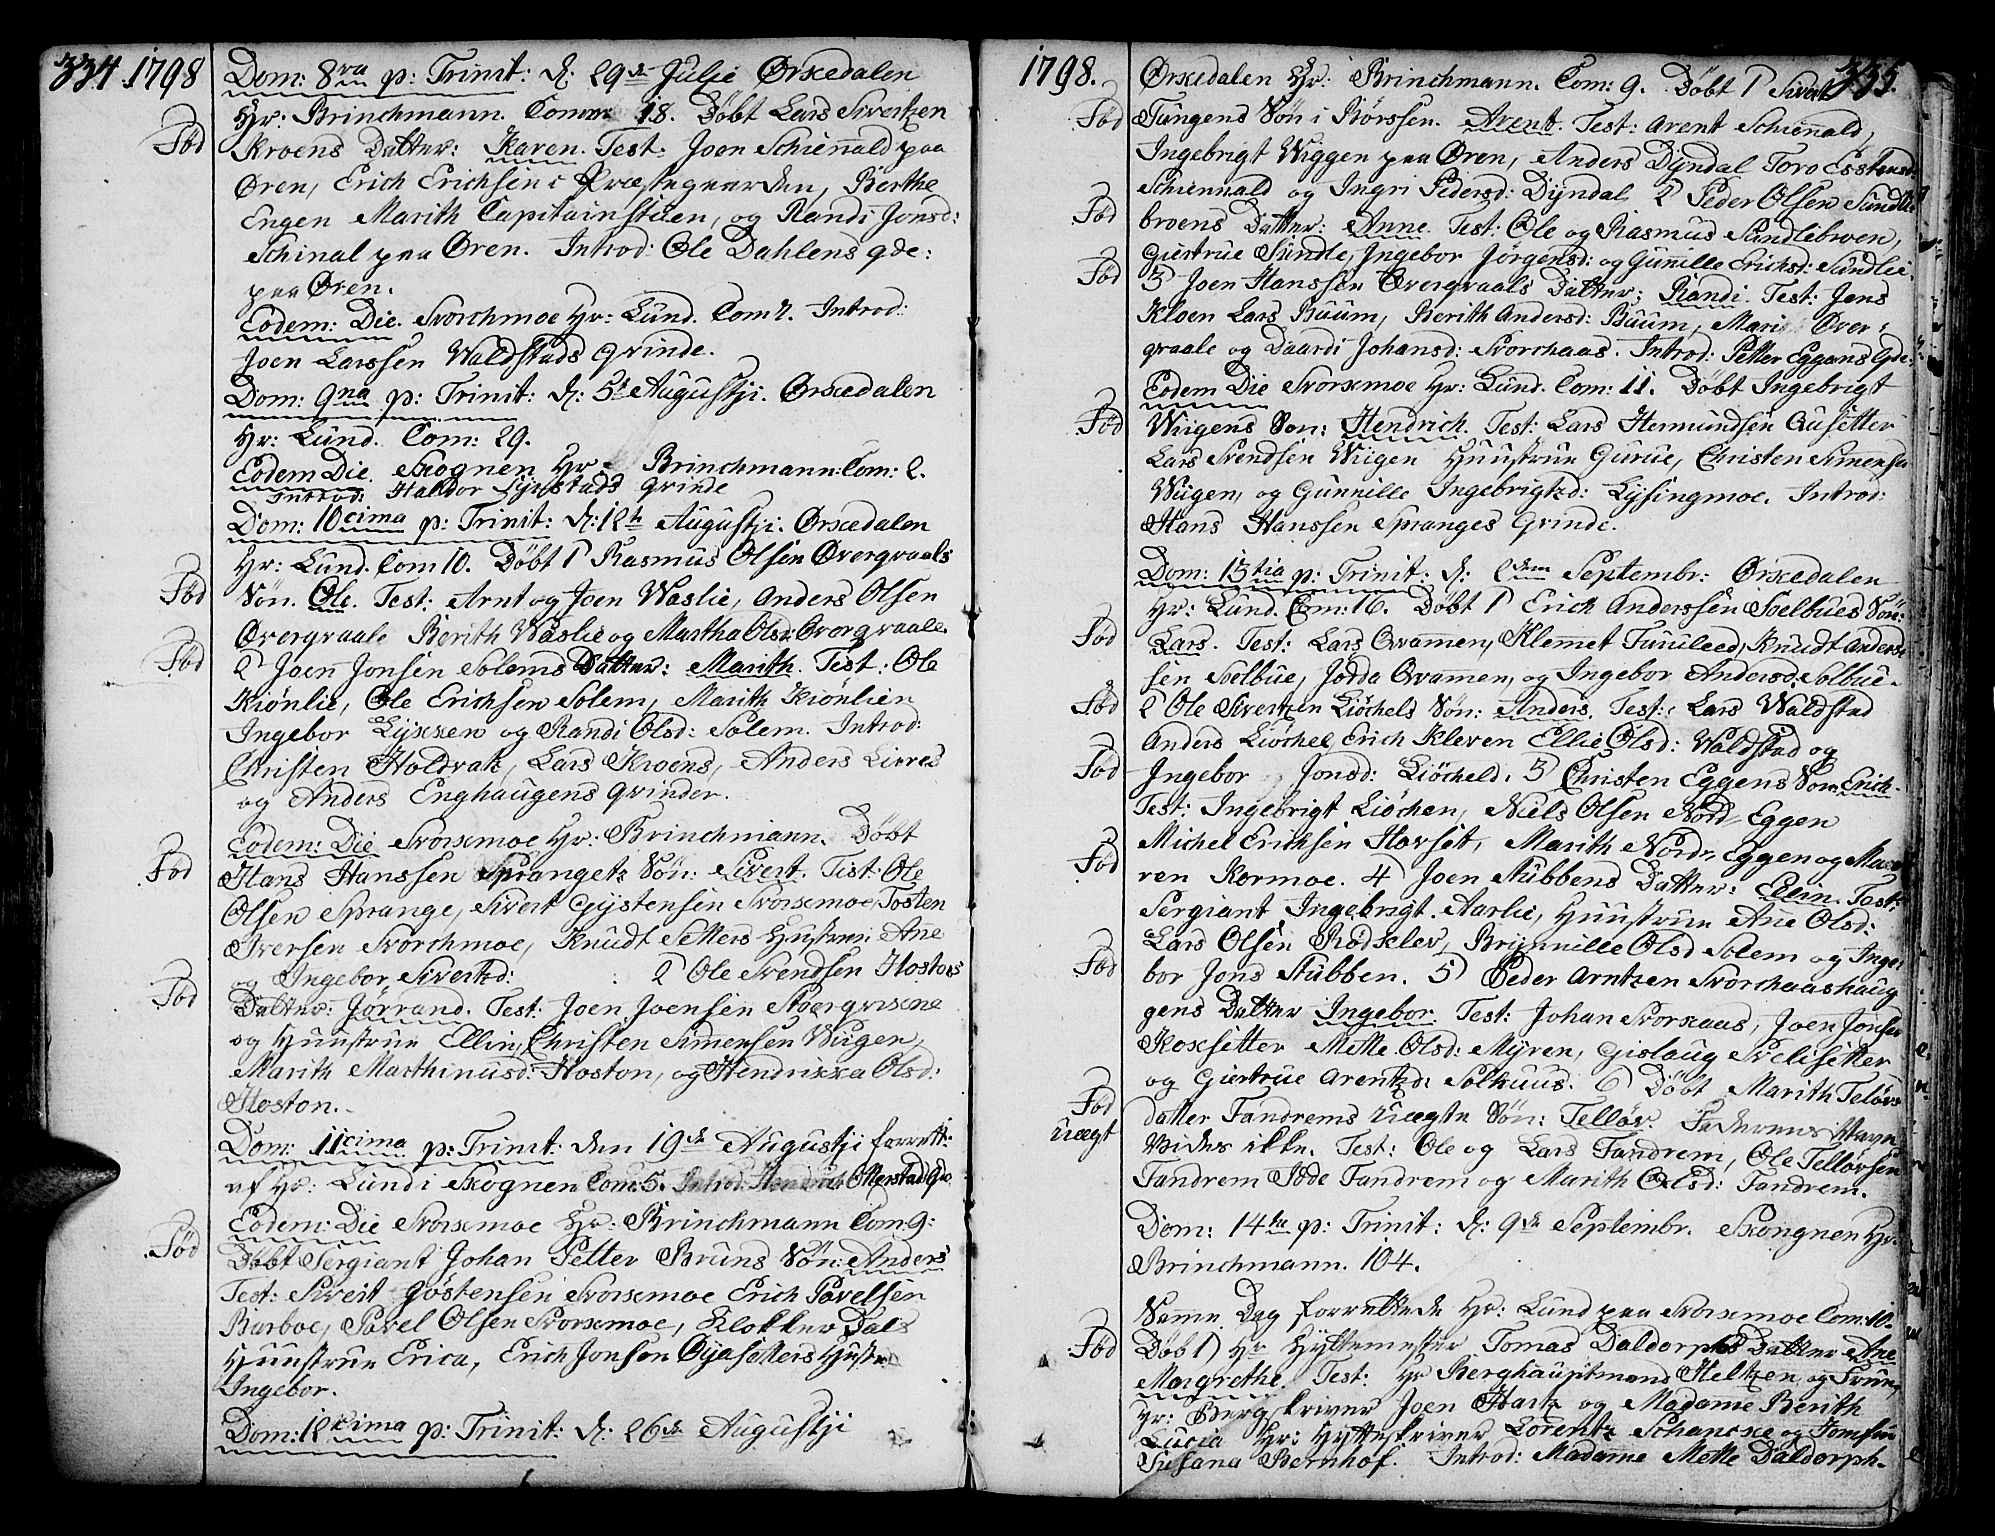 334 1798
Dom: 8va p: Trinit: d: 29de Julji Ørkedalen
Hr: Brinchmann. Comm 18. Døbt Lars Sivertzen
Fød
Kroens Datter: Karen. Test: Joen Schienald paa
Øren, Erich Erichsen i Præstegaarden, Berthe
Engen Marith Capitainstuen, og Randi Jonsd:
Schinal paa Øren. Introd: Ole Dahlens qde:
paa Øren.
Eodem: Die. Svorchmoe Hr: Lund. Com 7. Introd:
Joen Larssen Waldstads qvinde.
Dom: 9na p: Trinit: d: 5te Augustji. Ørkedalen
Hr: Lund. Com: 29.
Eodem Die. Skognen Hr Brinchmann: Com: 2.
Introd: Haldor Sÿrstads qvinde
Dom: 10cima p: Trinit: d: 12te Augustji. Ørkedalen
Hr: Lund. Com 10. Døbt 1) Rasmus Olsen Øvergraals
Fød
Søn. Ole. Test: Arnt og Joen Waslie, Anders Olsen
Øvergraale Berith Waslie og Martha Olsd: Øvergraale.
Fød
2) Joen Jonsen Solems Datter: Marith. Test: Ole
Kiønlie, Ole Erichsen Solem, Marith Kiønlien
Ingebor Lÿkken og Randi Olsd: Solem. Introd:
Christen Holdvak, Lars Kroens, Anders Lieres
og Anders Enghaugens qvinder.
Eodem: Die Svorkmoe Hr: Brinchmann. Døbt
Fød
Hans Hanssen Sprangets Søn: Sivert. Test: Ole
Olsen Sprange, Sivert Gÿstensen Svorkmoe, Tosten
Iversen Svorchmoe, Knudt Setters Hustrue Ane
og Ingebor Sivertzd: 2) Ole Svendsen Hostons
Fød
Datter: Jørrand. Test: Joen Joensen Storgrisene
og Huustrue Ellin, Christen Simensen Wuigen,
Marith Marthinusd: Hoston, og Hendrikka Olsd:
Hoston.
Dom: 11cima p: Trinit: den 19de Augustji forrett:
af Hr: Lund i Skognen Com: 5. Introd: Hendrich Otterstad Qv:
Eodem: Die Svorkmoe Hr: Brinchmann Com: 9:
Fød
Døbt Sergiant Johan Petter Bruns Søn: Anders
Test: Sivert Gøstensen Svorkmoe Erich Povelsen
Barboe, Povel Olsen Svorkmoe, Klokker Dals
Huustrue Erica, Erich Jonsen Øÿasetters Hustr
Ingebor.
Dom: 12cima p: Trinit: d: 26de Augustji
1798. 335.
Ørkedalen Hr: Brinchmann. Com: 9. Døbt 1) Sivert
Fød
Tungens Søn i Børssen. Arent. Test: Arent Schienald,
Ingebrigt Wiggen paa Øren, Anders Dÿndal Toro Estensd:
Schiennald og Ingri Pedersd: Dÿndal 2) Peder Olsen Sundle-
Fød
broens Datter: Anne. Test: Ole og Rasmus Sundlebroen,
Giertrue Sundle, Ingebor Jørgensd: og Gunnille Erichsd: Sundlei
Fød
3) Joen Hanssen Øvergraals Datter: Randi. Test: Jens
Kloen Lars Buum, Berith Andersd: Buum, Mari Øver-
graale og Daardi Johansd: Svorchaas. Introd: Petter Eggans Qde:
Eodem Die Svorkmoe Hr: Lund. Com: 11. Døbt Ingebrigt
Fød
Wuigens Søn: Hendrich. Test: Lars Hermundsen Ausetter
Lars Svendsen Wuigen Huustrue Gurue, Christen Simensen
Wuigen, og Gunnille Ingebrigtzd: Lÿsingmoe. Introd:
Hans Hanssen Spranges qvinde.
Dom: 13tia p: Trinit: d: 2den Septembr: Ørkedalen
Hr: Lund. Com: 16. Døbt 1) Erich Anderssen Soelbues Søn:
Fød
Lars. Test: Lars Qvamen, Klemmet Furuleed, Knudt Anders-
sen Soelbue, Jodda Qvamen, og Ingebor Andersd: Solbue.
Fød
2) Ole Sivertzen Liøchels Søn: Anders. Test: Lars Waldstad
Anders Liøchel, Erich Kleven Ellie Olsd: Waldstad og
Fød
Ingebor Jonsd: Liøcheld. 3) Christen Eggens Søn: Erich.
Test: Ingebrigt Liøchen, Niels Olsen Nord Eggen
Michel Erichsen Hovset, Marith Nord Eggen og Mare-
Fød
ren Kormoe. 4) Joen Stubbens Datter: Ellin. Test:
Sergiant Ingebrigt Aarlie, Huustrue Ane Olsd:
Lars Olsen Rødklev, Brÿnnille Olsd Solem og Inge-
Fød
bor Jons Stubben. 5) Peder Arntzen Svorchaashaug
gens Datter Ingebor. Test: Johan Svorkaas, Joen Jonsen
Koksetter Mette Olsd: Mÿren, Gislaug Svelisetter
og Giertrue Arentzd: Solhuus. 6) Døbt Marith Teløvs-
Fød
Uægt
datter Fandrems Uægte Søn: Telløv. Faderens Navn
Vides ikke. Test: Ole og Lars Fandrem, Ole Telløvsen
Fandrem Jode Fandrem og Marith Olsd: Fandrem.
Dom: 14te p: Trinit: d: 9de Septembr. Skongnen Hr:
Brinchmann. 104.
Samme Dag forrettede Hr: Lund paa Svorkmoe Com: 10.
Fød
Døb 1) Hr Hÿttemester Tomas Daldorphs Datter Ane
Margrethe. Test: Hr Berghauptmand Heltzen og Frue,
Hr: Bergskriver Joen Hartz og Madame Berith
Lucia Hr: Hÿtteskriver Lorentz Schancke og Jomfrue
Susana Bernhof. Introd: Madame Mette Daldorph.